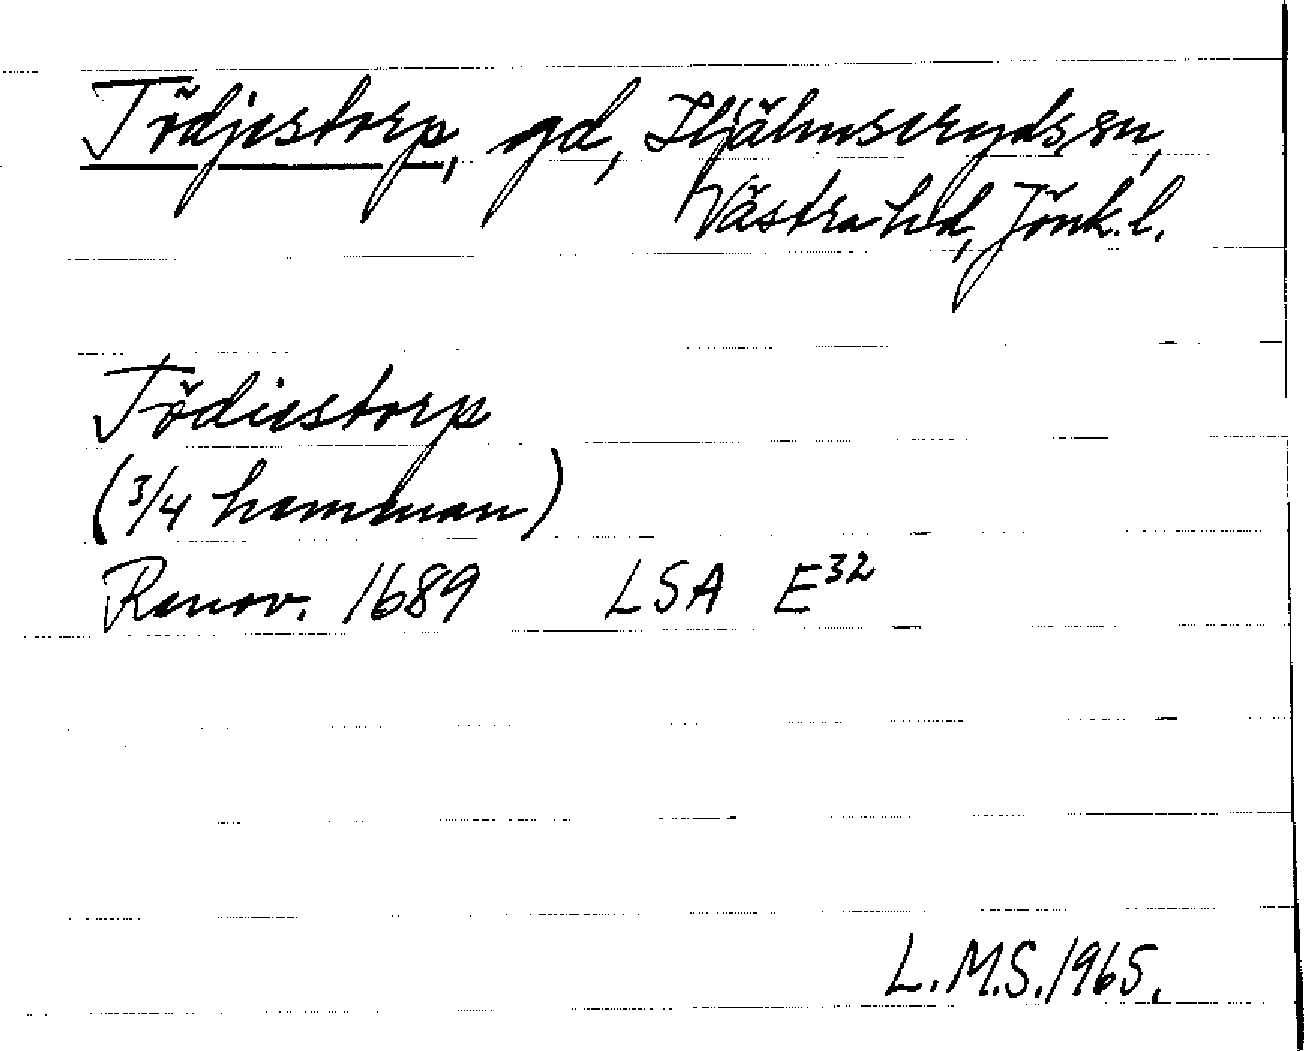 Tödjestorp, gd, Hjälmseryds sn,
Västra hd, Jönk. l.
Tödiestorp
(3/4 hemman)
Renov. 1689 LSA E32
L.M.S. 1965.